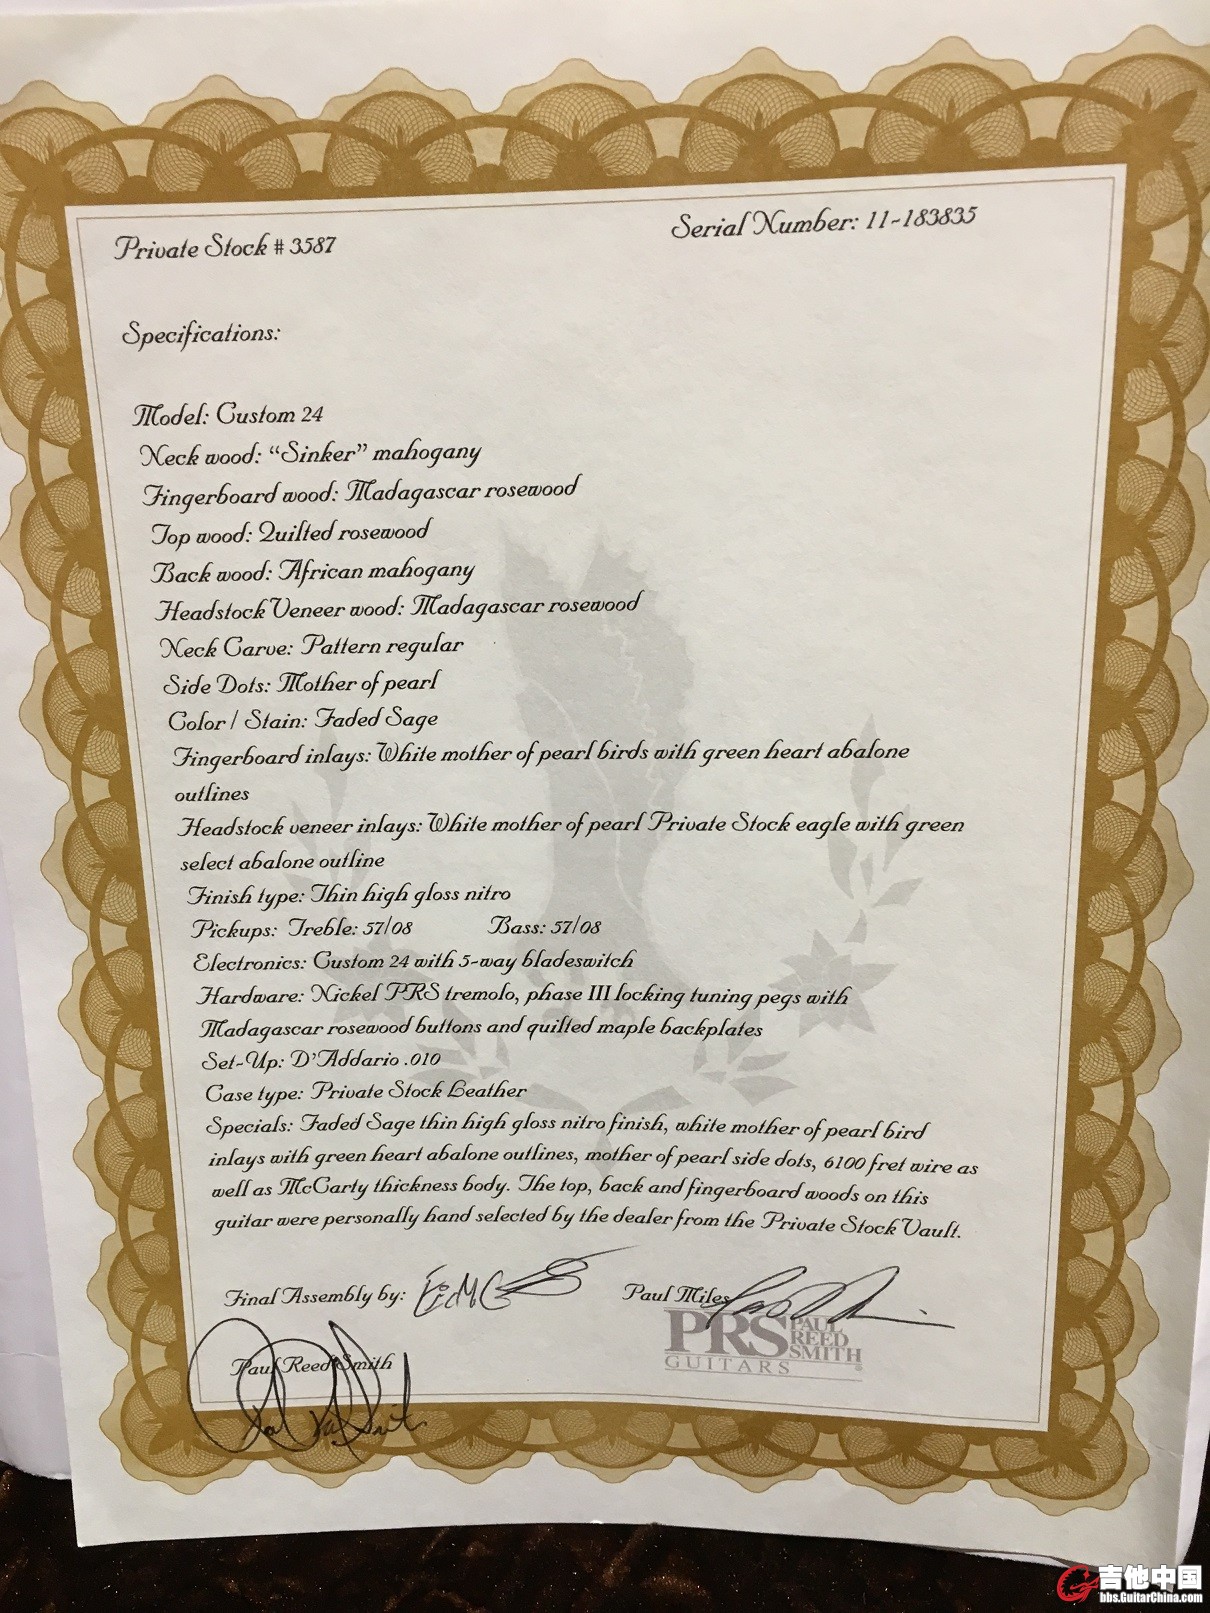 Private Stock # 3587
Serial Number: 11-183835
Specifications:
Model: Custom 24
Neck wood: “Sinker” mahogany
Fingerboard wood: Madagascar rosewood
Top wood: Quilted rosewood
Back wood: African mahogany
Headstock Veneer wood: Madagascar rosewood
Neck Carve: Pattern regular
Side Dots: Mother of pearl
Color / Stain: Faded Sage
Fingerboard inlays: White mother of pearl birds with green heart abalone
outlines
Headstock veneer inlays: White mother of pearl Private Stock eagle with green
select abalone outline
Finish type: Thin high gloss nitro
Pickups: Treble: 57/08 Bass: 57/08
Electronics: Custom 24 with 5-way bladeswitch
Hardware: Nickel PRS tremolo, phase III locking tuning pegs with
Madagascar rosewood buttons and quilted maple backplates
Set-Up: D’Addario .010
Case type: Private Stock Leather
Specials: Faded Sage thin high gloss nitro finish, white mother of pearl bird
inlays with green heart abalone outlines, mother of pearl side dots, 6100 fret wire as
well as McCarty thickness body. The top, back and fingerboard woods on this
guitar were personally hand selected by the dealer from the Private Stock Vault.
Final Assembly by:
Paul Miles
PRS PAUL REED SMITH
GUITARS
Paul Reed Smith
吉他中国
bbs.GuitarChina.com